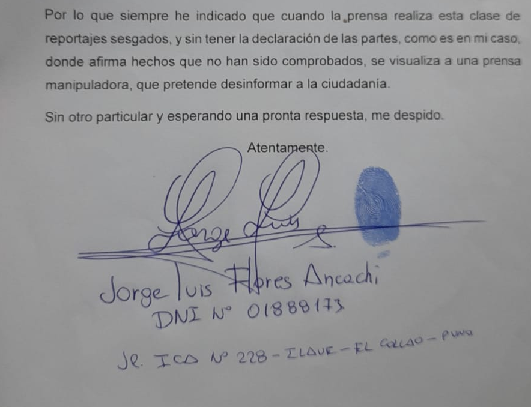 Por lo que siempre he indicado que cuando la prensa realiza esta clase de
reportajes sesgados, y sin tener la declaración de las partes, como es en mi caso,
donde afirma hechos que no han sido comprobados, se visualiza a una prensa
manipuladora, que pretende desinformar a la ciudadanía.
Sin otro particular y esperando una pronta respuesta, me despido.
Atentamente.
Jorge Luis
Jorge luis Flores Ancachi
DNI Nº 01888173
JR. ICA Nº 228 - ILAVE - EL COLLAO - PUNO